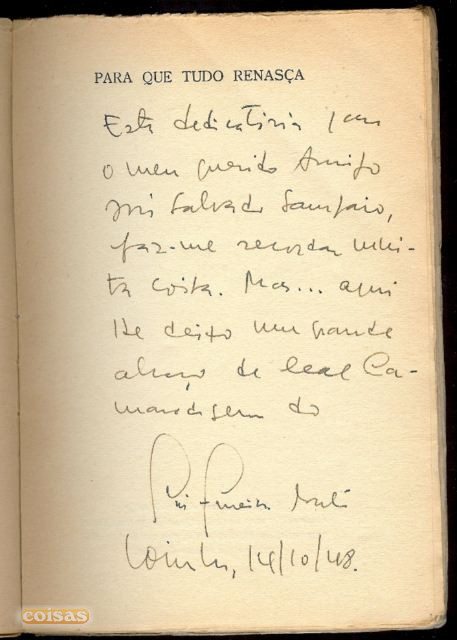 PARA QUE TUDO RENASÇA
Esta dedicatória para
o meu querido Amigo
José Salvador Sampaio,
faz-me recordar mui-
ta coisa. Mas... aqui
lhe deixo um grande
abraço de leal Ca-
maradagem do
Coimbra, 14/10/48.
coisas